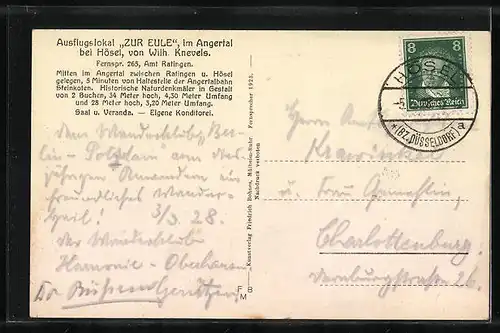 Ausflugslokal „ZUR EULE“, im Angertal
bei Hösel, von Wilh. Knevels.
Fernspr. 265, Amt Ratingen.
Mitten im Angertal zwischen Ratingen u. Hösel
gelegen, 5 Minuten von Haltestelle der Angertalbahn
Steinkoten. Historische Naturdenkmäler in Gestalt
von 2 Buchen, 34 Meter hoch, 4,30 Meter Umfang
und 28 Meter hoch, 3,20 Meter Umfang.
Saal u. Veranda. — Eigene Konditorei.
Dem Wanderklub „Ber-
lin - Potsdam" am dies-
jährigen Anwandern ein
freundliches Wander-
heil! 5/3. 28.
Der Wanderklub
Harmonie - Oberhausen
F 8
M
Kunstverlag Friedrich Bohnes, Mülheim-Ruhr. Fernsprecher 1925.
Nachdruck verboten
8 8
Deutsches Reich
HÖSEL
-5.
* (BZ. DÜSSELDORF) a
Herrn
Krawinkel
u. Frau Gemahlin,
Charlottenburg.
Dernburgstraße 26.